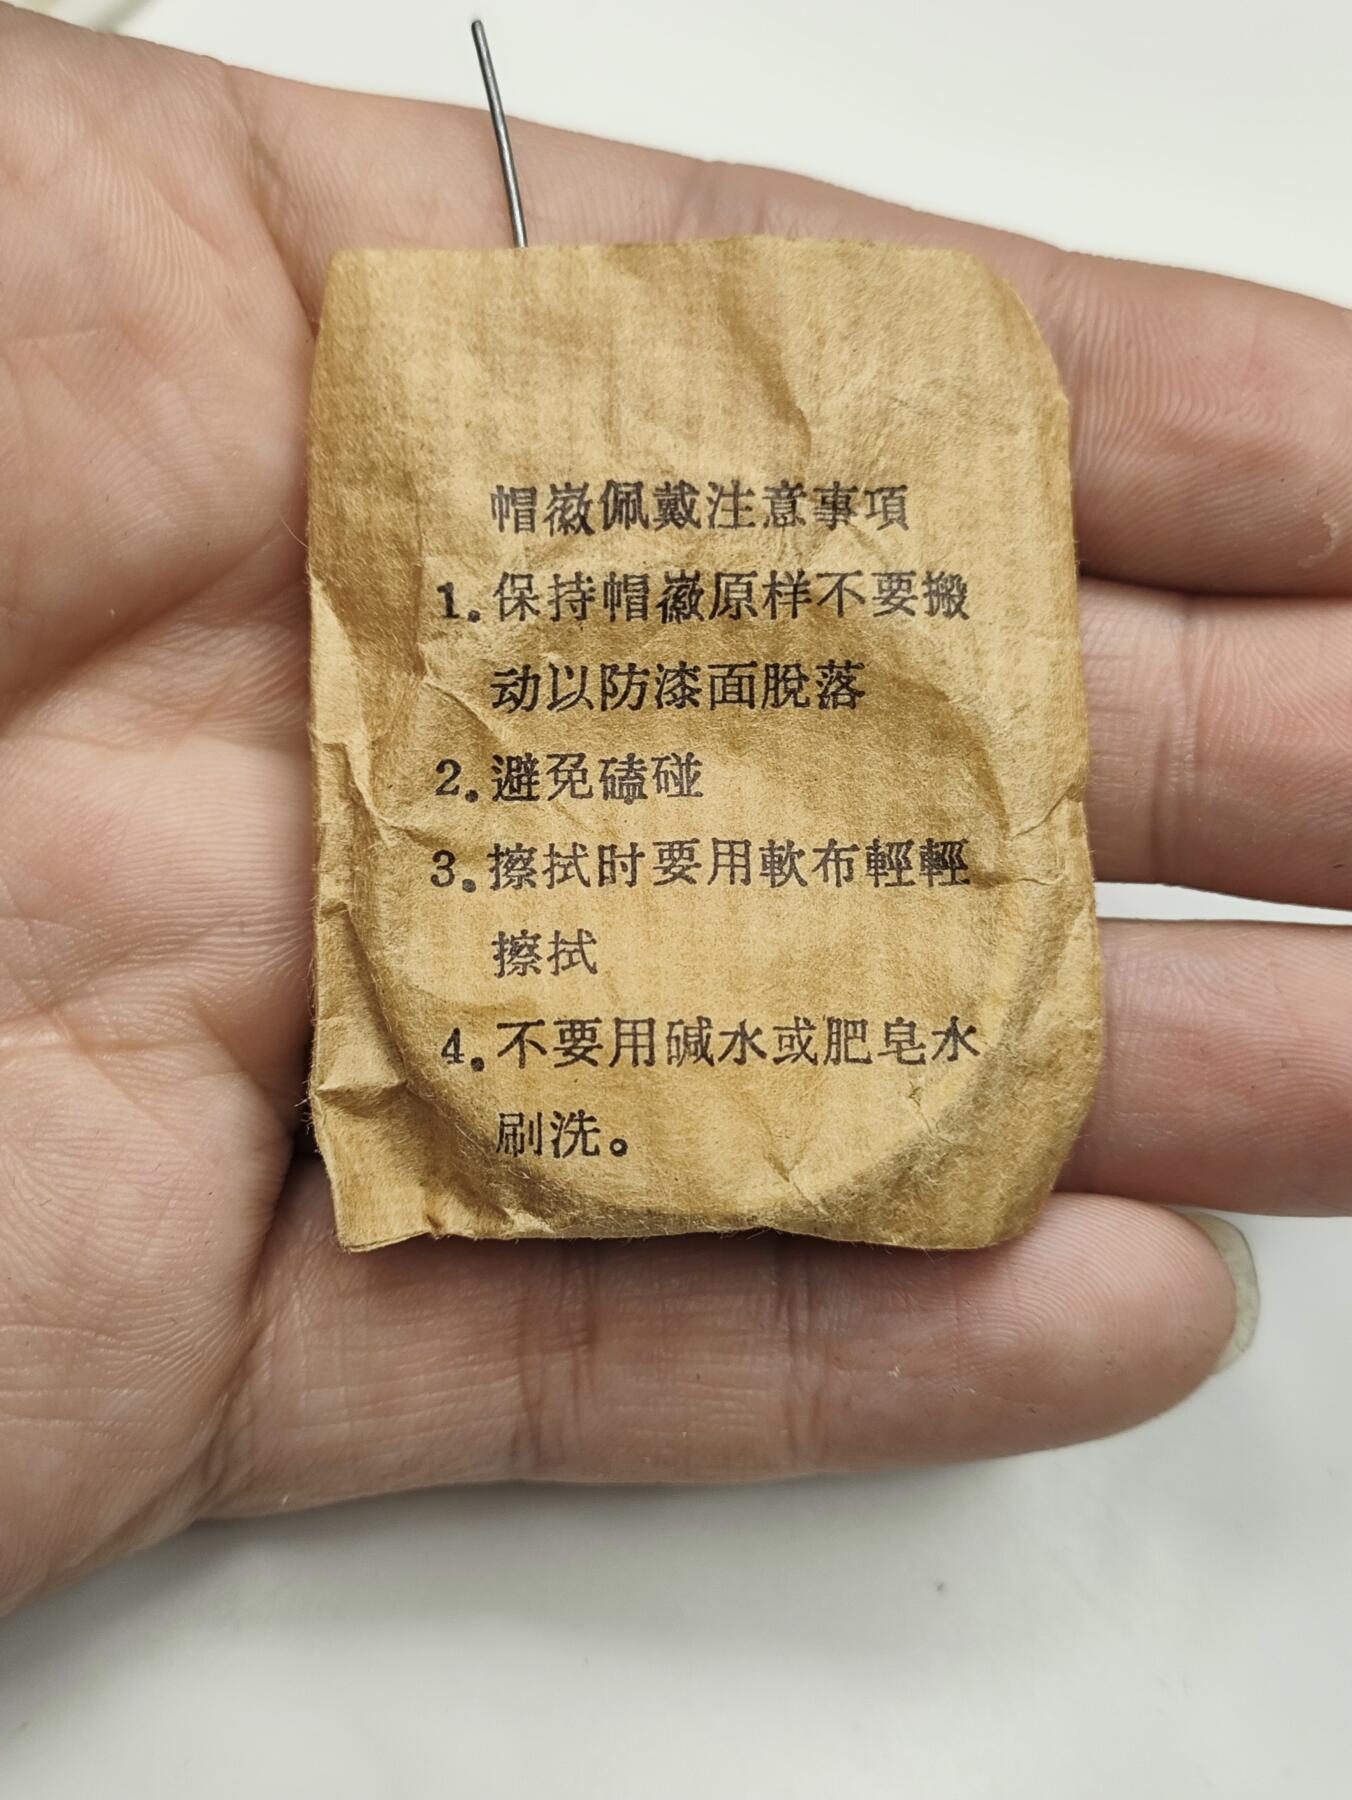 帽徽佩戴注意事項
1.保持帽徽原样不要搬
动以防漆面脫落
2.避免磕碰
3.擦拭时要用軟布輕輕
擦拭
4.不要用碱水或肥皂水
刷洗。